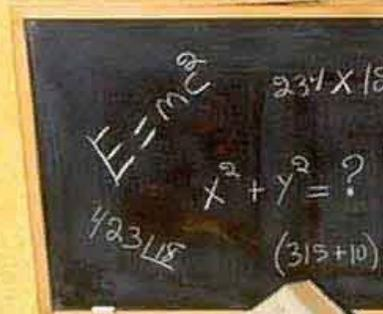 E=mc²
234 X 18
x² + y² = ?
423 18
(315+10)